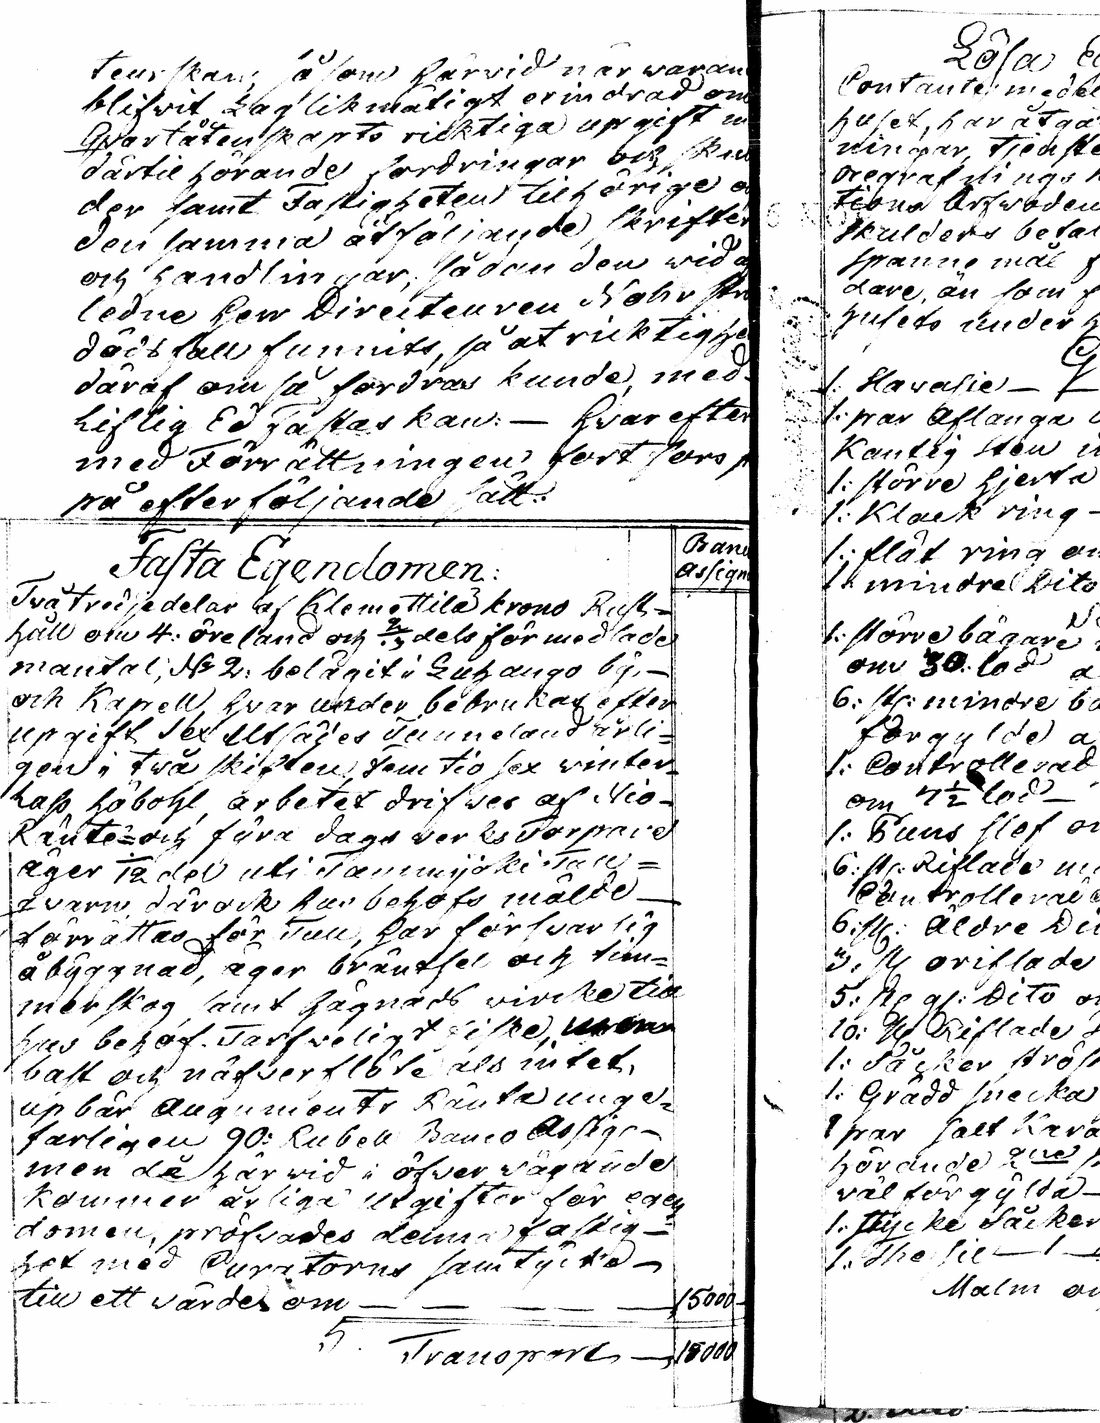 så som härvid närvaran
blifvit Laglikmätigt erindrad om
Qvarlåtenskapts ricktiga upgift
därtil hörande fordringar och skul
der samt Fastigheten tilhörige
den samma åtföljande skrifter
och handlingar, sådan den vid
ledne Herr Directeuren Mohr
dödsfall funnits, så at ricktighe
däraf om så fordras kunde, med
Liflig Ed fästas kan: — Hvarefter
med Förrättningen fort fors
på efterföljande sätt:
Fasta Egendomen:
Banco
Assign
Två tredjedelar af Klemettilä krono Rust-
håll om 4: öreland och 2/3 dels förmedlade
mantal, No 2: belägit i Luhango by,—
och Kapell, hvarunder bebrukas efter
upgift Sex Utsädes Tunneland årli=
gen i två skiften, Femtio sex winter-
lass höbohl, arbetet drifves af Nio-
Ränte= och fyra dagsverks Torpare
äger 1/12 del uti Tammijoki Tull=
qvarn, där ock husbehofs mäld—
förrättas för Tull, har försvarlig
åbyggnad, äger bräntsel och tim=
merskog, samt hägnads virke till
husbehof. Tarfveligt fiske,
bast och näfverflöte als intet,
upbär Augments Ränta unge=
farligen 90: Rubel Banco Assigr—
men då härvid i öfvervägande
kommer årliga utgifter för egen
domen, pröfvades denna fastig—
het med Curatorns samtycke—
till ett värde om — — — — 15000
Transport — 15000
Lösa
Contante medel
huset, har åtgå
ningar, Tjenste
Begrafnings
tions Arfvoden
skulders betal
spannemål f
dare, än som
husets under h
G
1: Havasie —
1: par Aflånga
Kantig sten
1: större hjerta
1: Klack ring —
1: slät ring
1: mindre Dito
1: större bägare
om 30: lod
6: st: mindre
förgylde
1: Controllerad
om 7 1/2 lod —
1: Puns slef
6: st: Riflade
Controllerade
6: st: Äldre
3: st oriflade
5: st gl: Dito
10: st Riflade
1: Såcker strös
1: Grädd snecka
1 par Salt Kara
hörande
väl förgylda —
1: Stycke Såcker
1: The sil — 1 —
Malm